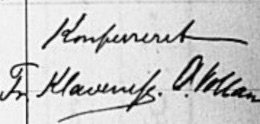 Konfereret
Fr. Klaveness. O. Vollan